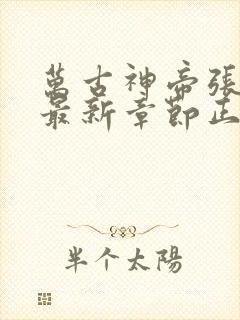 萬古神帝張
最新章節正
半个太陽